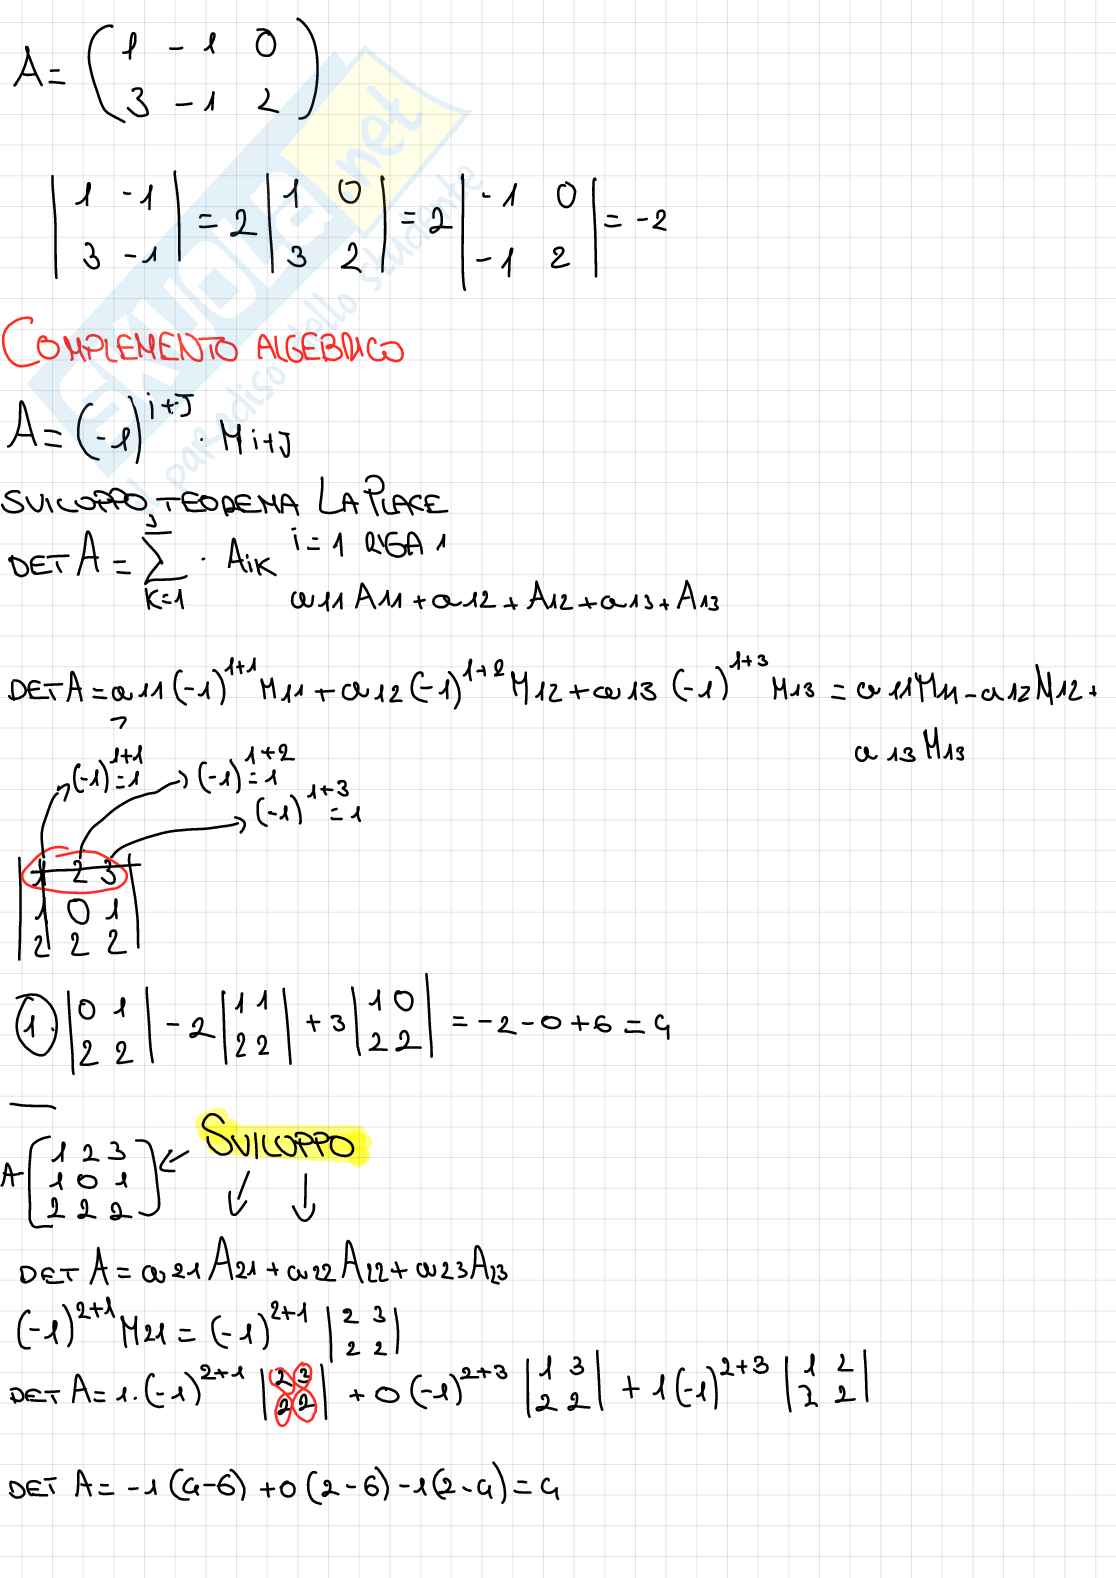 A = ( 1 -1 0
3 -1 2 )
| 1 -1 ; 3 -1 | = 2 | 1 0 ; 3 2 | = 2 | -1 0 ; -1 2 | = -2
COMPLEMENTO ALGEBRICO
A = (-1)^i+J · Mi+J
SVILUPPO TEOREMA LA PLACE
DET A = Σ^3 K=1 · Aik i = 1 RIGA 1
a11 A11 + a12 + A12 + a13 + A13
DET A = a11 (-1)^1+1 M11 + a12 (-1)^1+2 M12 + a13 (-1)^1+3 M13 = a11 M11 - a12 M12 +
a13 M13
(-1)^1+1 = 1 (-1)^1+2 = 1
(-1)^1+3 = 1
1 2 3
1 0 1
2 2 2
1 · | 0 1 ; 2 2 | - 2 | 1 1 ; 2 2 | + 3 | 1 0 ; 2 2 | = -2 - 0 + 6 = 4
SVILUPPO
A [ 1 2 3
1 0 1
2 2 2 ]
DET A = a21 A21 + a22 A22 + a23 A23
(-1)^2+1 M21 = (-1)^2+1 | 2 3 ; 2 2 |
DET A = 1 · (-1)^2+1 | 2 3 ; 2 2 | + 0 (-1)^2+3 | 1 3 ; 2 2 | + 1 (-1)^2+3 | 1 2 ; 2 2 |
DET A = -1 (4-6) + 0 (2-6) - 1 (2-4) = 4
skuola.net
il paradiso dello studente